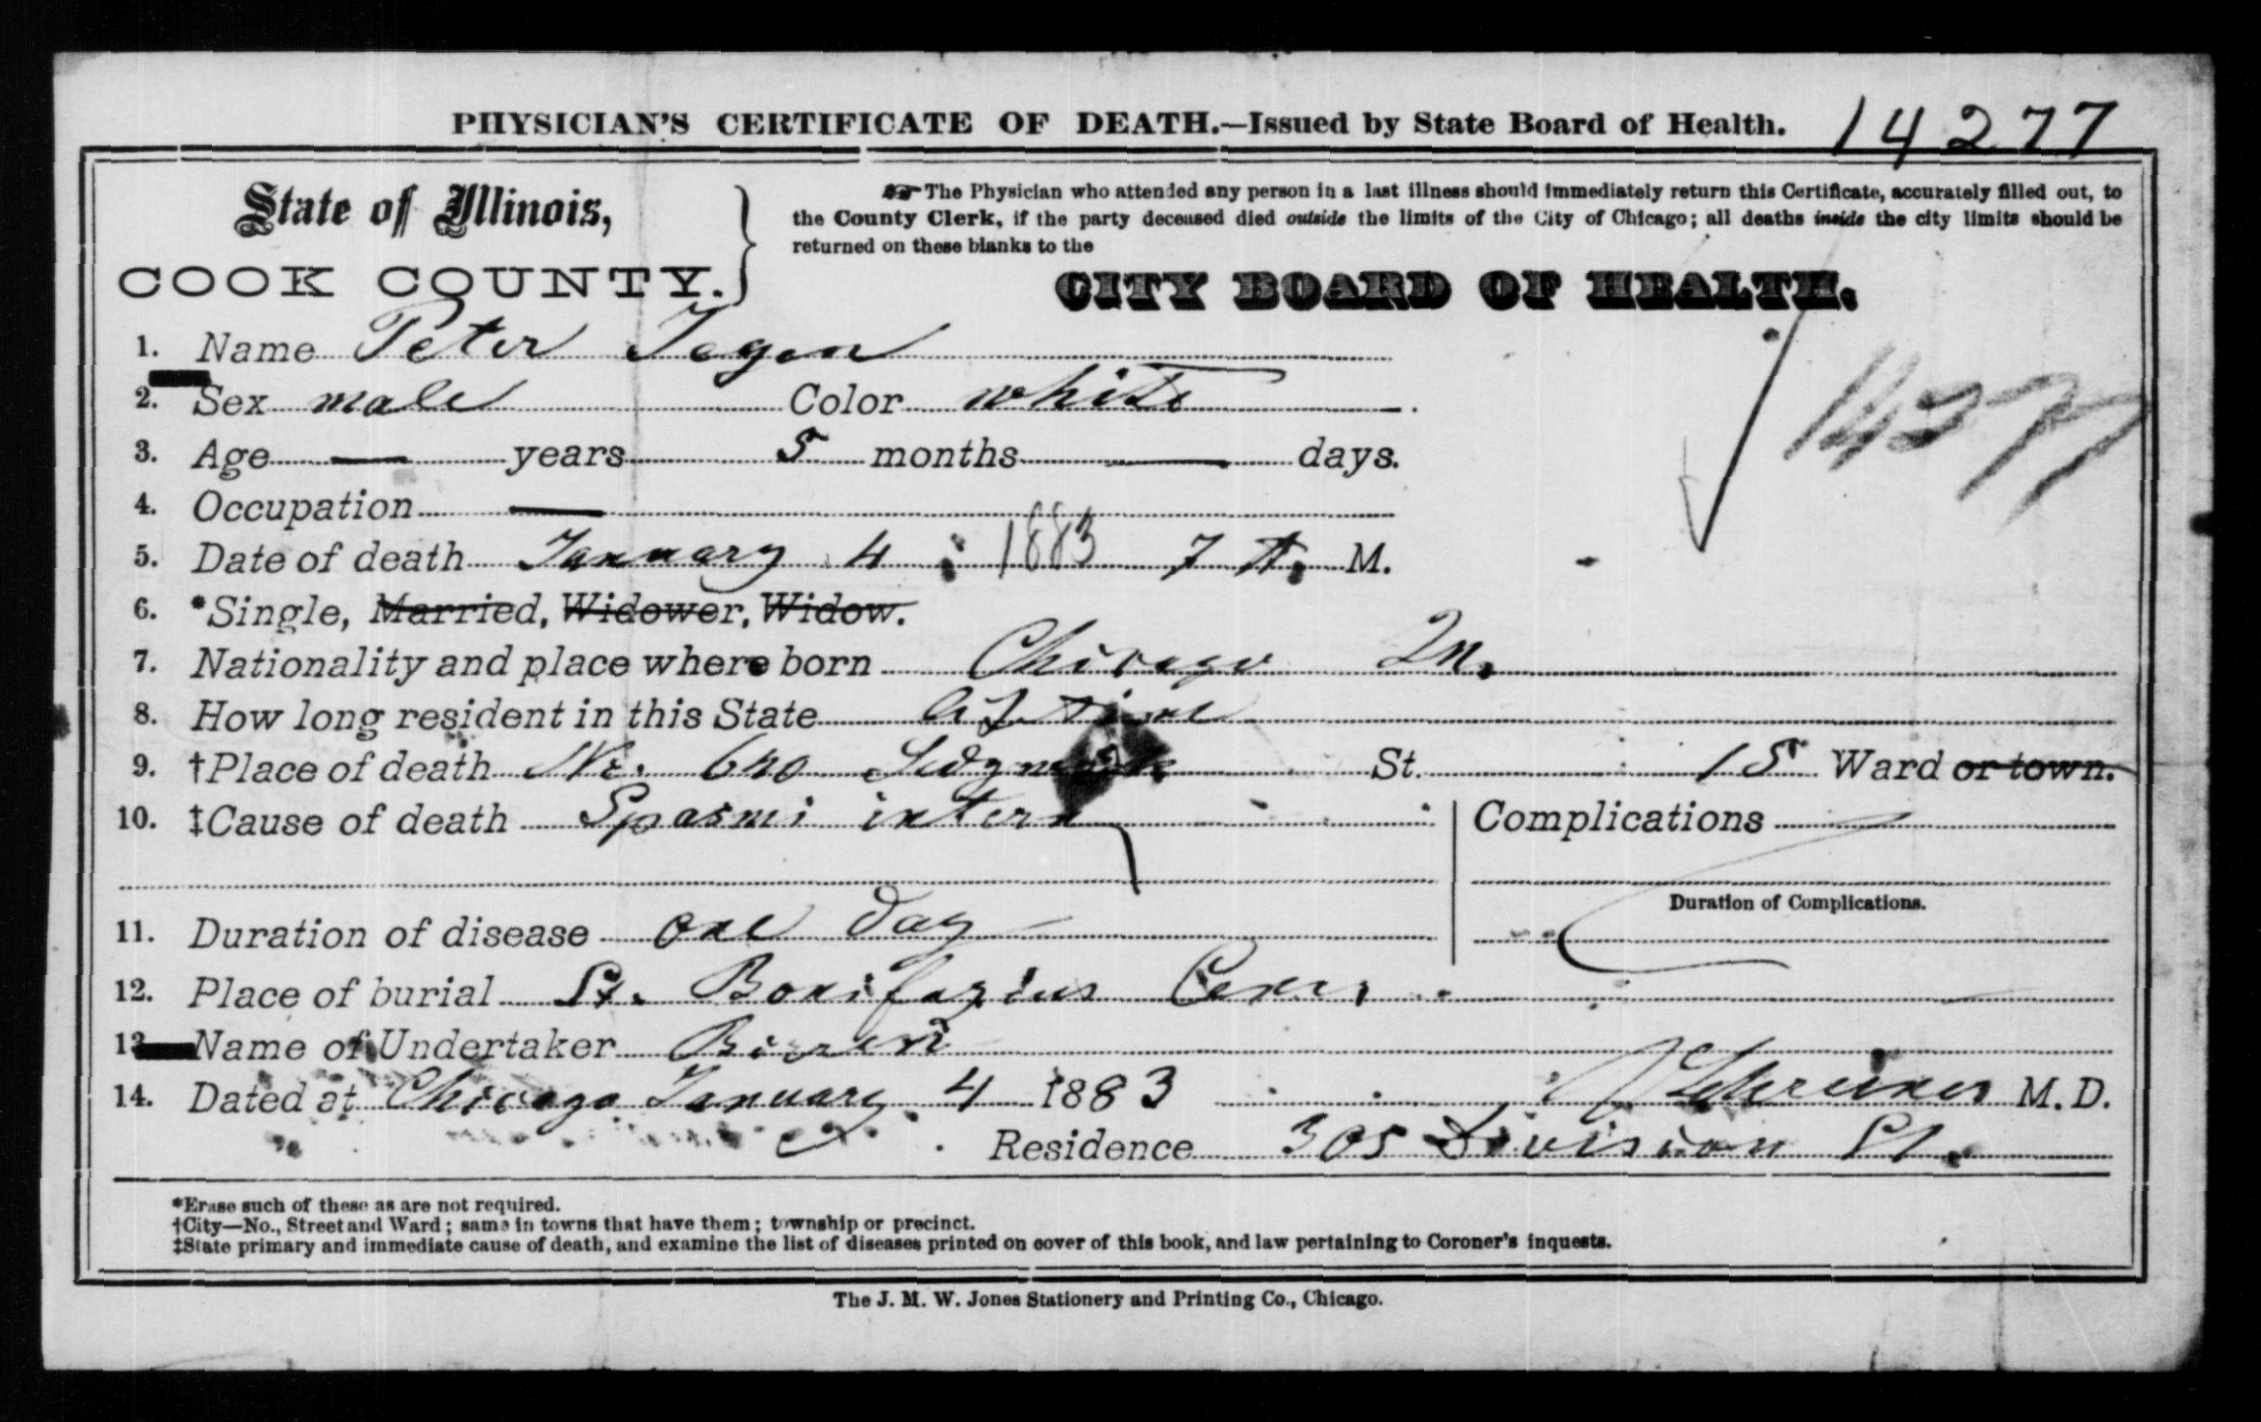 PHYSICIAN'S CERTIFICATE OF DEATH.—Issued by State Board of Health. 14277
State of Illinois,
COOK COUNTY.
☞The Physician who attended any person in a last illness should immediately return this Certificate, accurately filled out, to
the County Clerk, if the party deceased died outside the limits of the City of Chicago; all deaths inside the city limits should be
returned on these blanks to the
CITY BOARD OF HEALTH.
14277
1. Name Peter Tegen
2. Sex male Color white
3. Age — years 5 months — days.
4. Occupation —
5. Date of death January 4 1883 7 A. M.
6. *Single, Married, Widower, Widow.
7. Nationality and place where born Chicago Ill.
8. How long resident in this State life time
9. †Place of death No. 640 Sedgwick St. 15 Ward or town.
10. ‡Cause of death Spasmi intern Complications
Duration of Complications.
11. Duration of disease one day
12. Place of burial St. Bonifazius Cem.
13. Name of Undertaker Birren
14. Dated at Chicago January 4 1883 Schreiner M.D.
Residence 305 Division St.
*Erase such of these as are not required.
†City—No., Street and Ward; same in towns that have them; township or precinct.
‡State primary and immediate cause of death, and examine the list of diseases printed on cover of this book, and law pertaining to Coroner's inquests.
The J. M. W. Jones Stationery and Printing Co., Chicago.